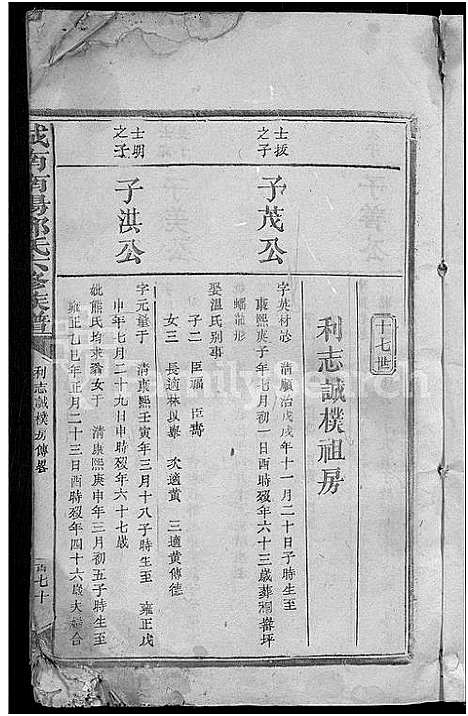 十七世
利志誠樸祖房
士拔之子
子茂公
字英材 清順治戊戌年十一月二十日子時生至
康熙庚子年七月初一日酉時歿年六十三歲葬
螺形
娶溫氏別事
子二 臣福
女三 長適林 次適黃 三適黃傳德
士明之子
子洪公
字元 清康熙壬寅年三月十八子時生至 雍正戊
申年七月二十九日申時歿年六十七歲
妣熊氏均來翁女于 清康熙庚申年三月初五子時生至
雍正乙巳年正月二十三日酉時歿年四十六歲夫合
城南南陽鄧氏六修族譜
利志誠樸房傳
七十